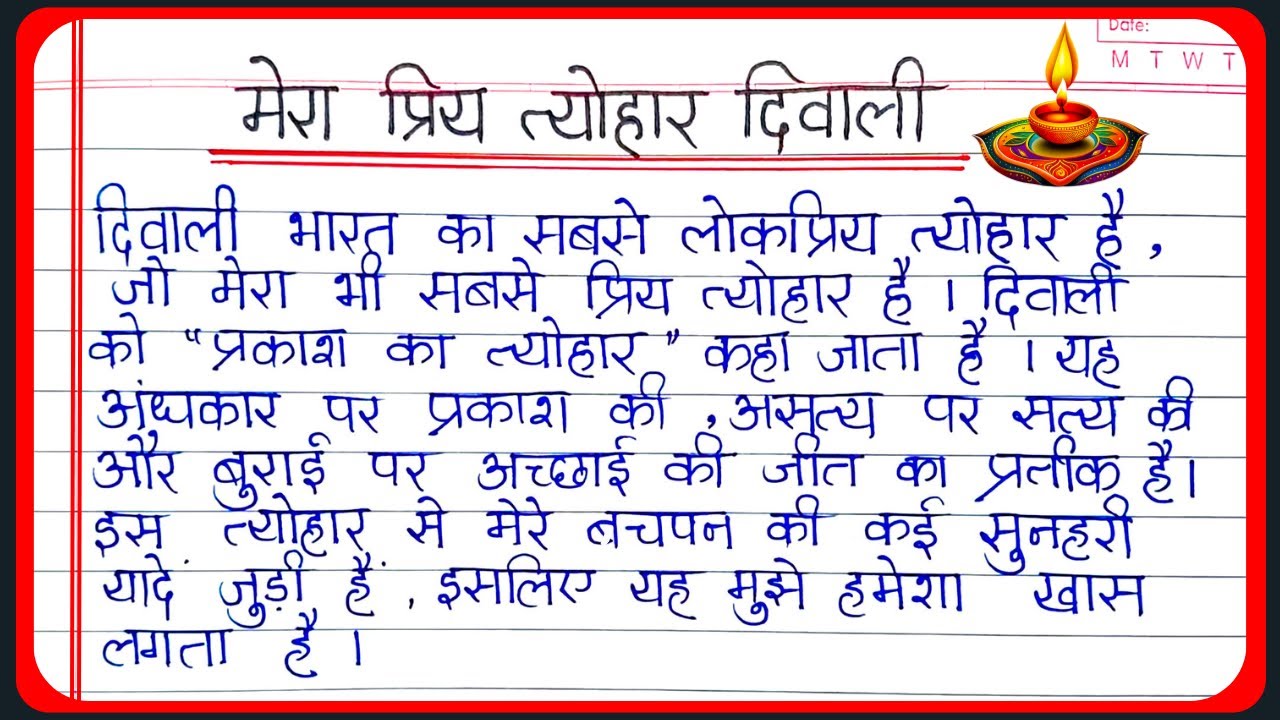 Date:
M T W T
मेरा प्रिय त्योहार दिवाली
दिवाली भारत का सबसे लोकप्रिय त्योहार है,
जो मेरा भी सबसे प्रिय त्योहार है । दिवाली
को "प्रकाश का त्योहार" कहा जाता है । यह
अंधकार पर प्रकाश की, असत्य पर सत्य की
और बुराई पर अच्छाई की जीत का प्रतीक है।
इस त्योहार से मेरे बचपन की कई सुनहरी
यादें जुड़ी हैं, इसलिए यह मुझे हमेशा खास
लगता है ।